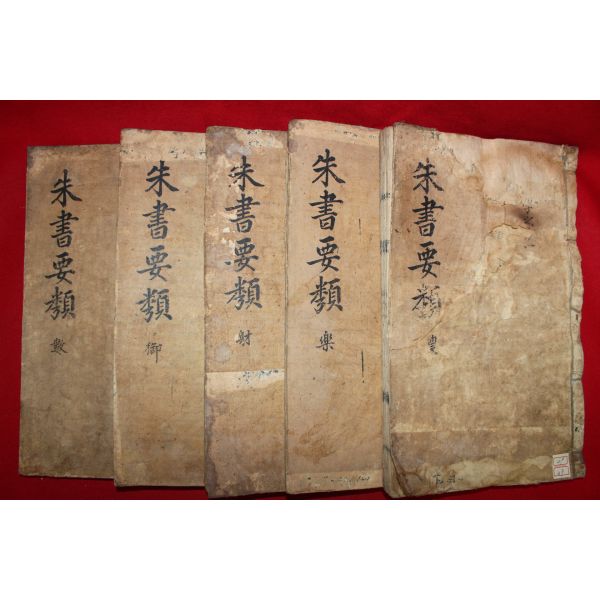 朱書要類
豊
朱書要類
樂
朱書要類
射
朱書要類
御
朱書要類
數